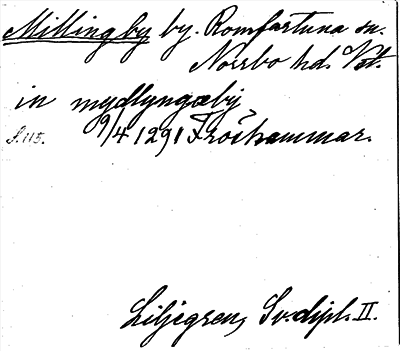 Millingby by. Romfartuna sn.
Norrbo hd. Vstm.
in mydlyngæby
S. 115. 9/4 1291 Fröshammar.
Liljegren, Sv. dipl. II.